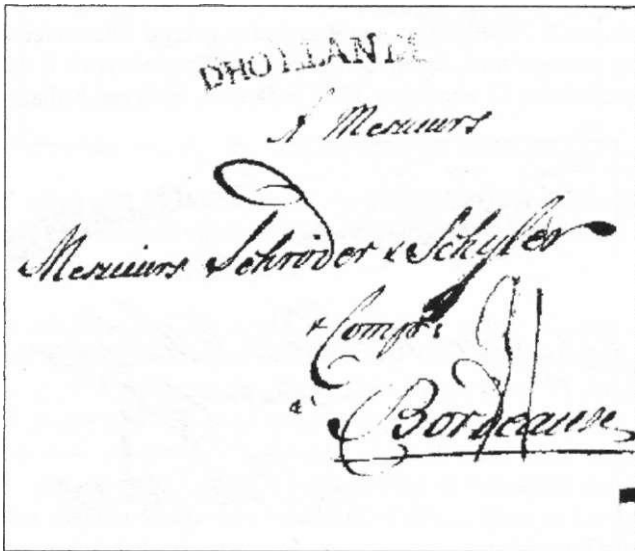 DHOLLANDE
A Messieurs
Messieurs Schröder & Schyler
& Comp.e
a'
Bordeaux